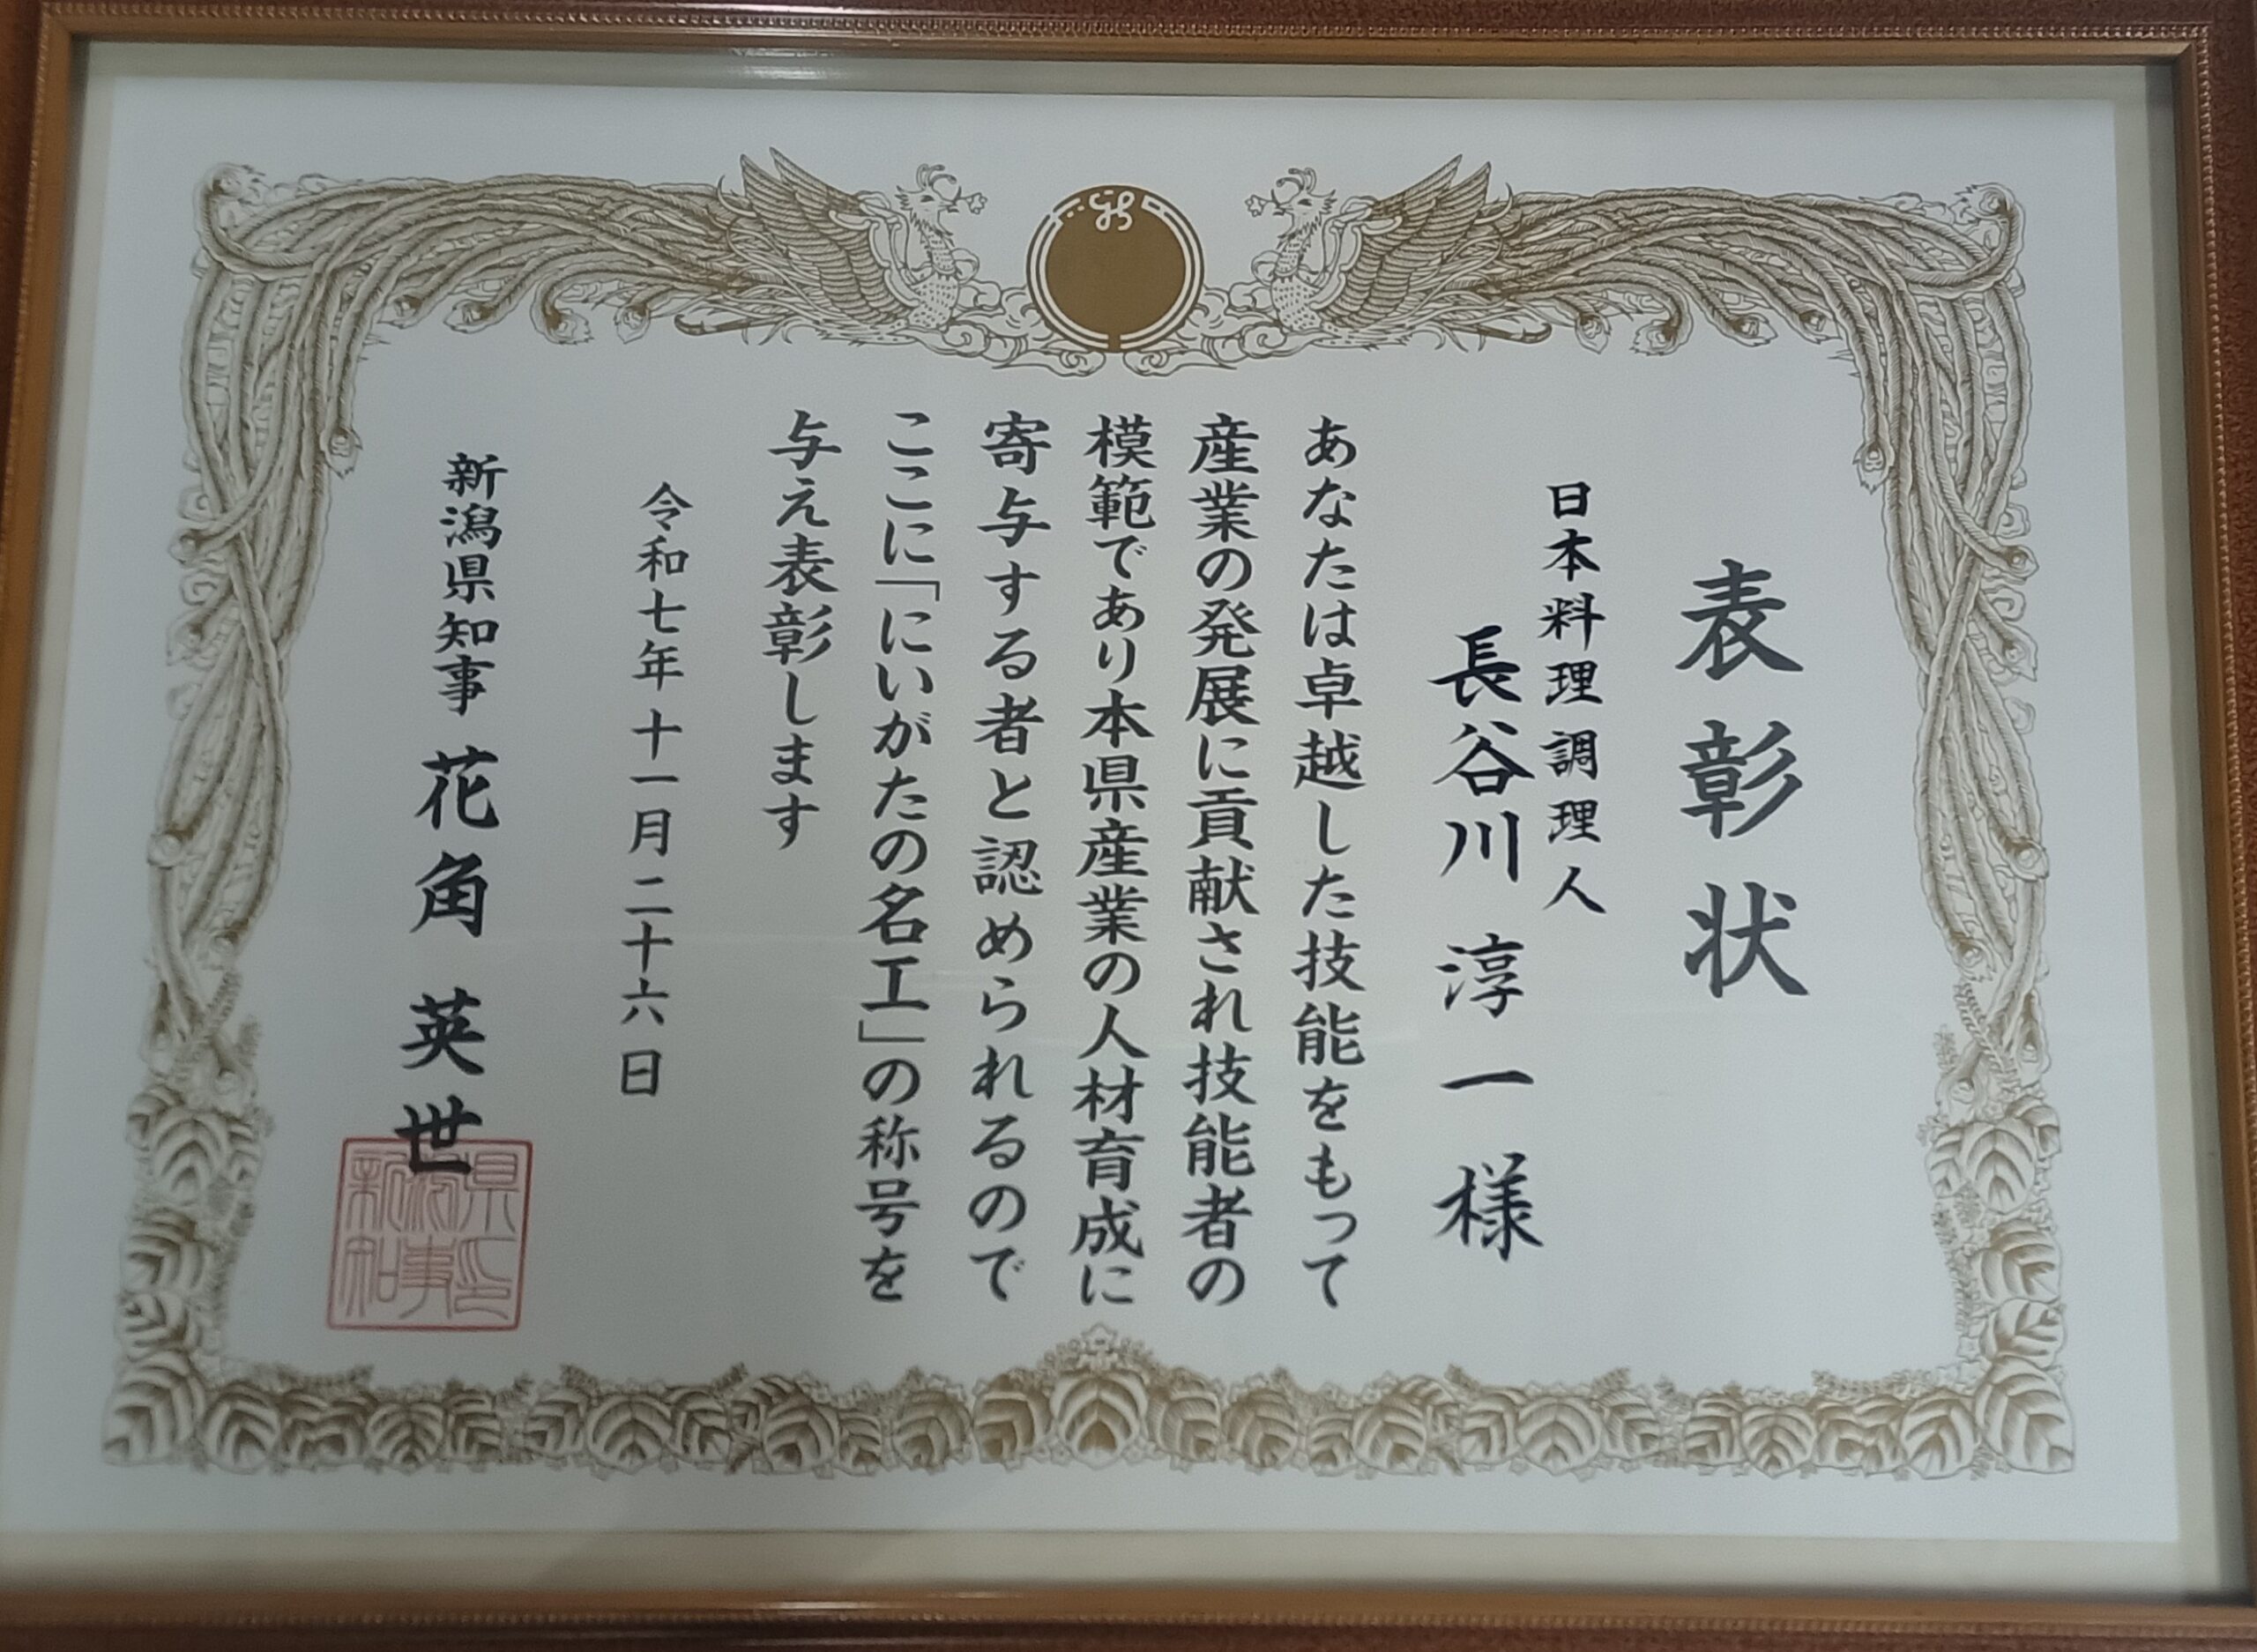 表彰状
日本料理調理人
長谷川淳一様
あなたは卓越した技能をもって
産業の発展に貢献され技能者の
模範であり本県産業の人材育成に
寄与する者と認められるので
ここに「にいがたの名工」の称号を
与え表彰します
令和七年十一月二十六日
新潟県知事 花角英世
新潟県知事印